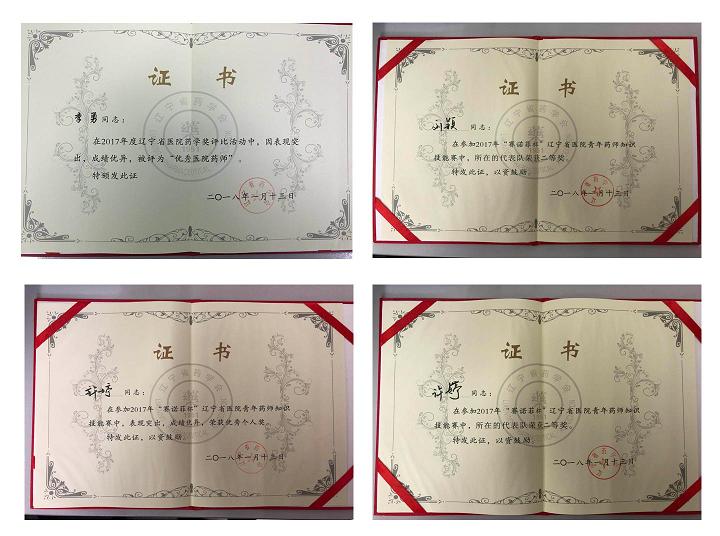 证 书
李勇 同志：
在2017年度辽宁省医院药学奖评比活动中，因表现突
出、成绩优异，被评为“优秀医院药师”。
特颁发此证
二〇一八年一月十三日
辽宁省药学会
证 书
刘颖 同志：
在参加2017年“赛诺菲杯”辽宁省医院青年药师知识
技能赛中，所在的代表队荣获二等奖。
特发此证，以资鼓励。
二〇一八年一月十三日
辽宁省药学会
证 书
许婷 同志：
在参加2017年“赛诺菲杯”辽宁省医院青年药师知识
技能赛中，表现突出，成绩优异，荣获优秀个人奖。
特发此证，以资鼓励。
二〇一八年一月十三日
辽宁省药学会
证 书
许婷 同志：
在参加2017年“赛诺菲杯”辽宁省医院青年药师知识
技能赛中，所在的代表队荣获二等奖。
特发此证，以资鼓励。
二〇一八年一月十三日
辽宁省药学会